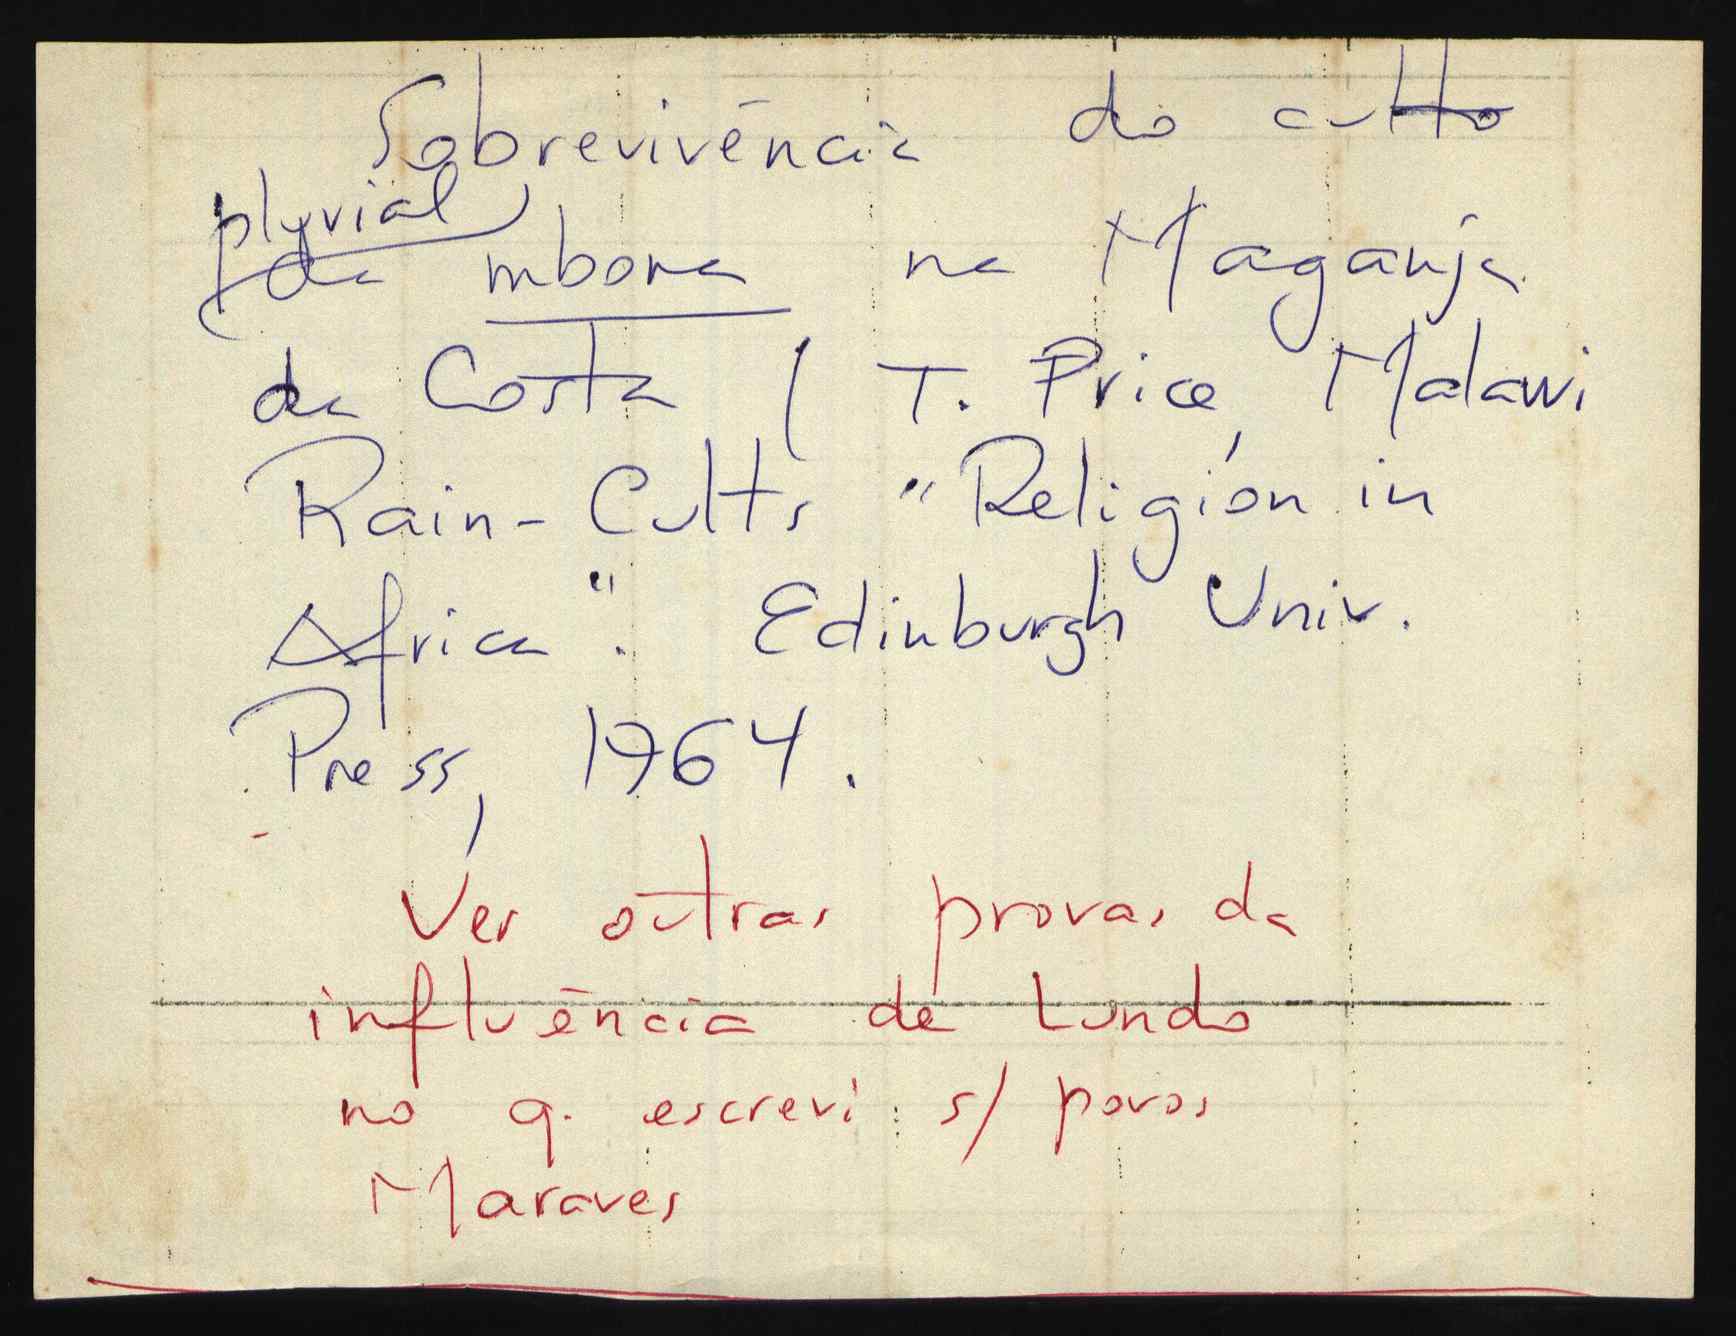 Sobrevivência do culto
pluvial
da mbona na Maganja
da Costa / T. Price, Malawi
Rain-Cults "Religión in
Africa". Edinburgh Univ.
Press, 1964.
Ver outras provas da
influência de Lundo
no q. escrevi s/ povos
Maraves